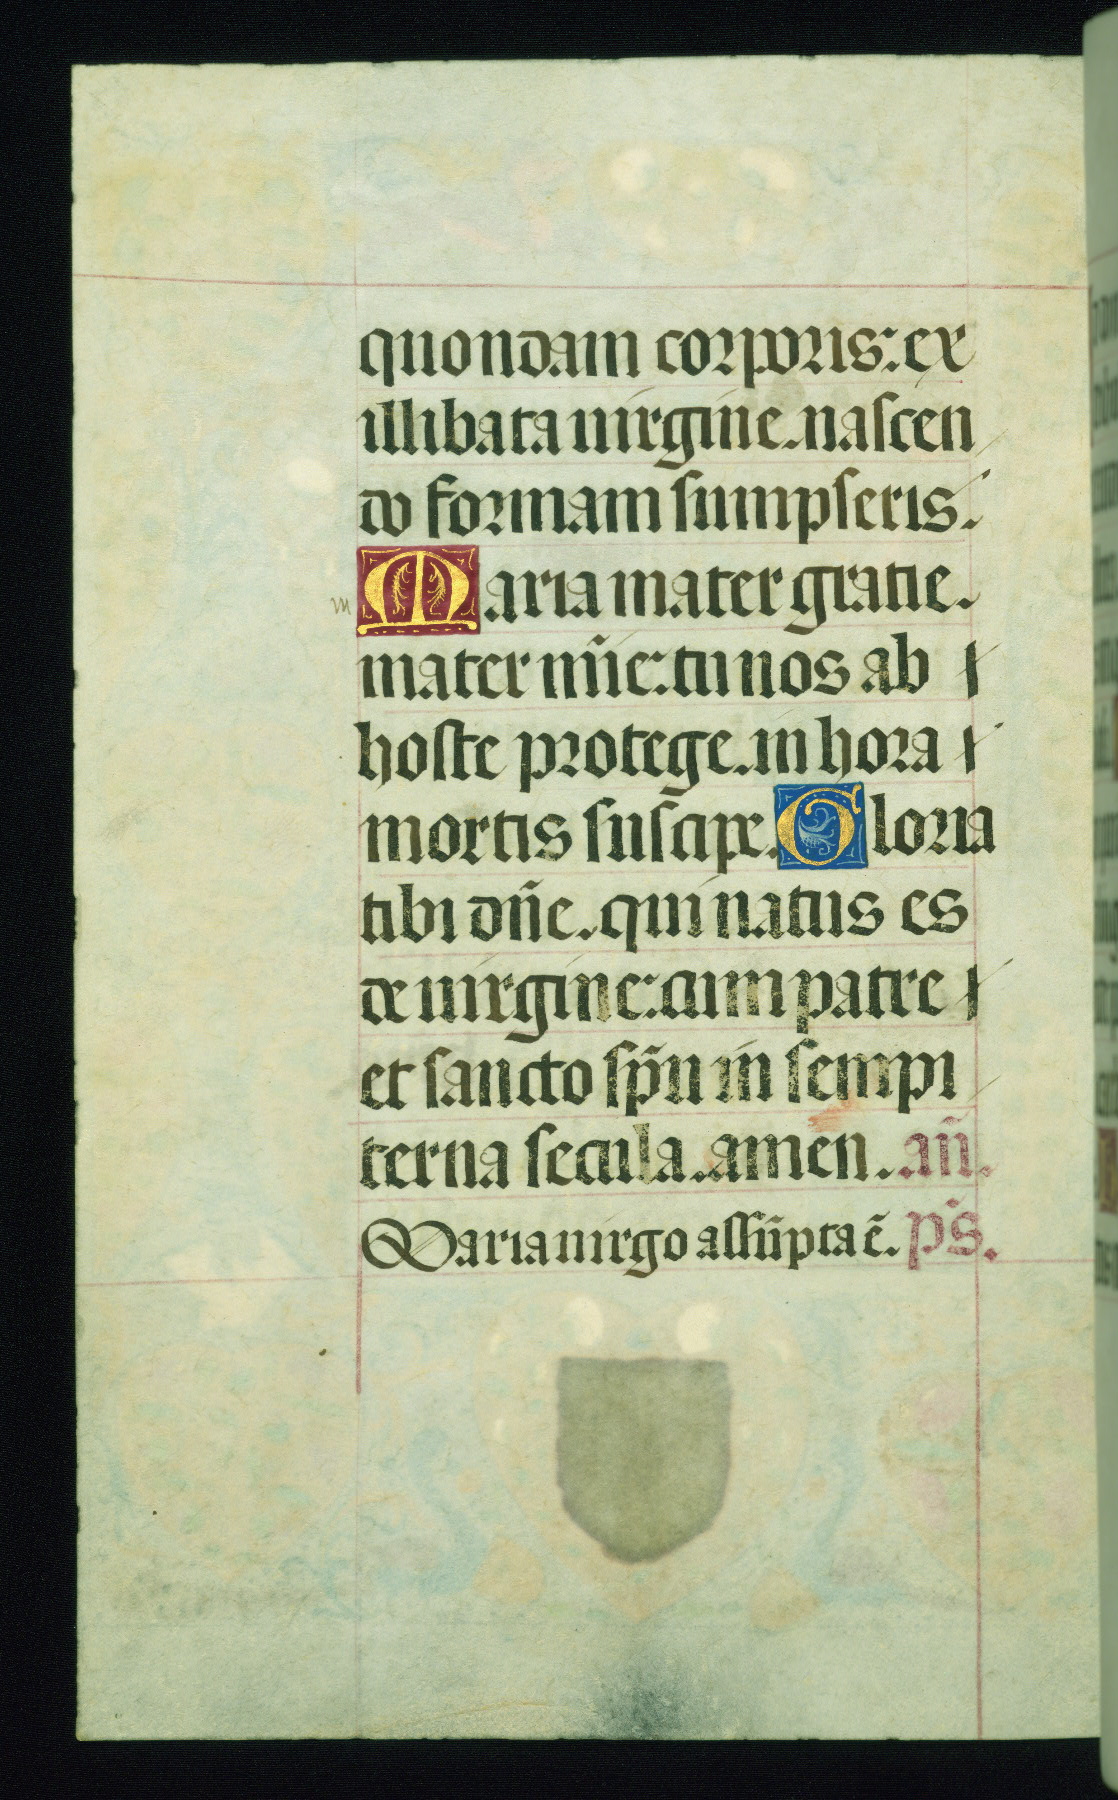 quondam corporis: ex
illibata uirgine. nascen
do formam sumpseris.
m Maria mater gratie.
mater mīe: tu nos ab
hoste protege. in hora
mortis suscipe. Gloria
tibi dn̄e. qui natus es
de uirgine: cum patre
et sancto sp̄u in sempi
terna secula. amen. an̄.
Maria uirgo assūpta ē. ps̄.